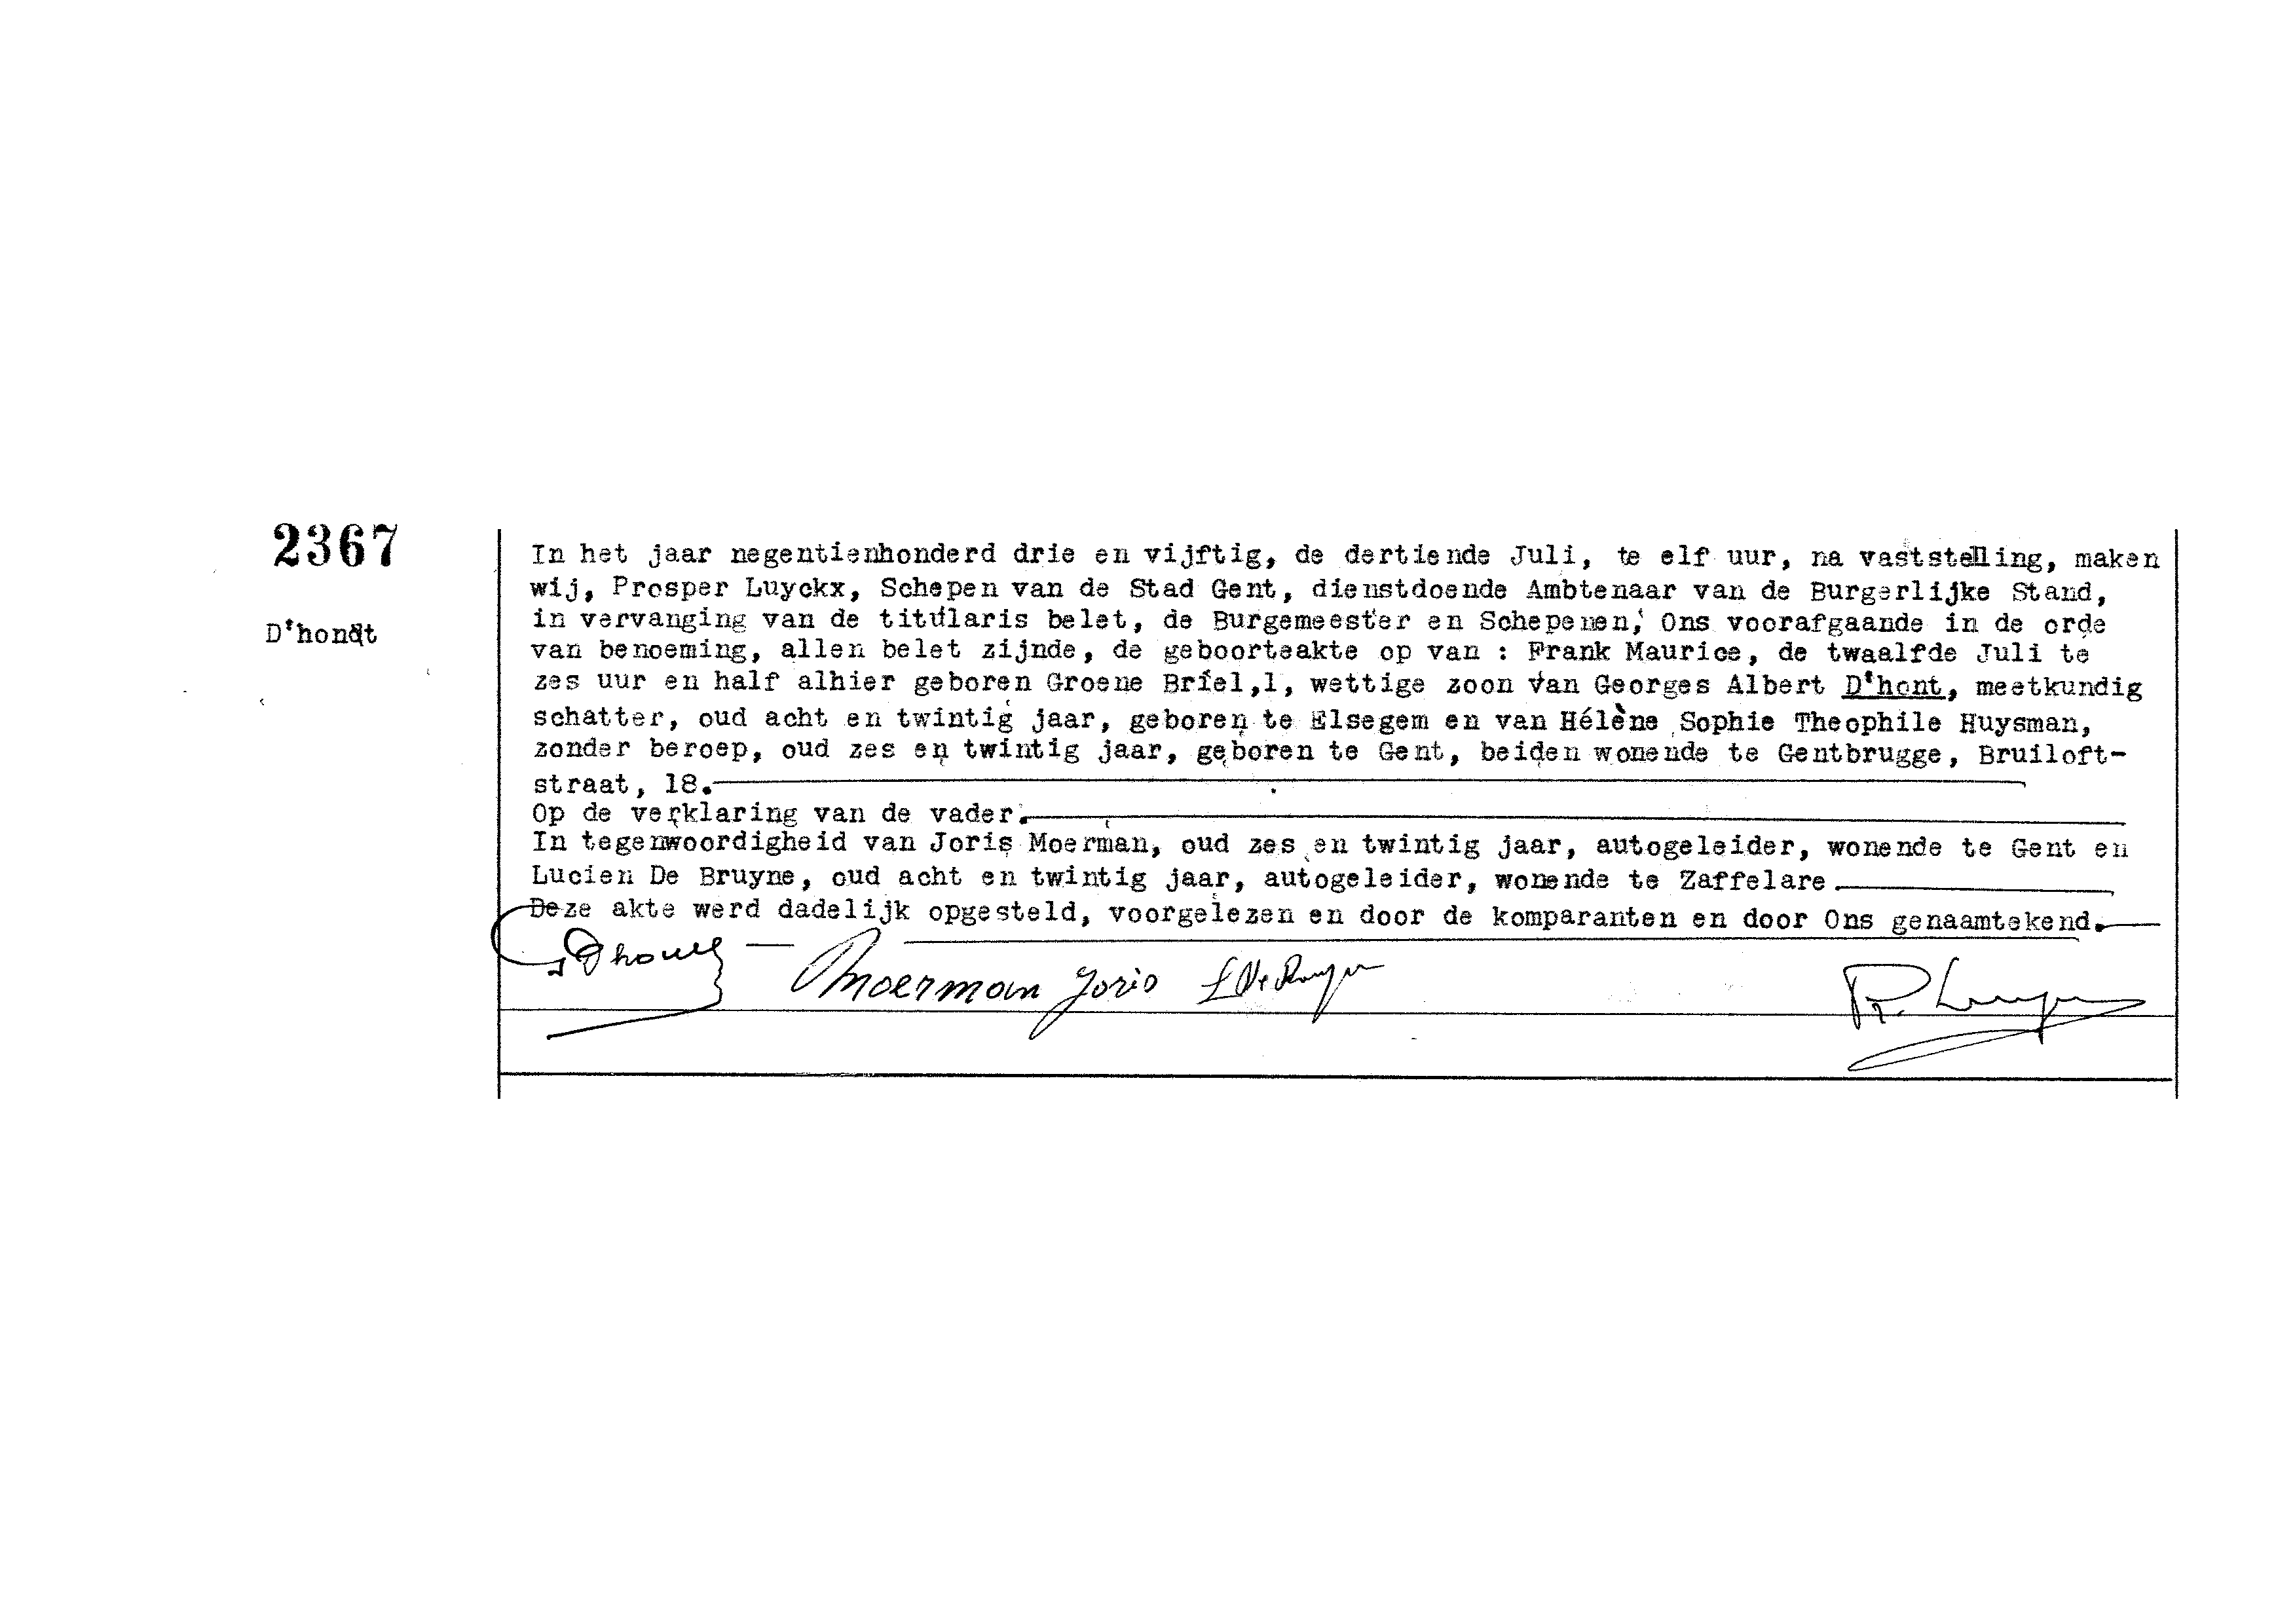 2367
D'hondt
In het jaar negentienhonderd drie en vijftig, de dertiende Juli, te elf uur, na vaststelling, maken
wij, Prosper Luyckx, Schepen van de Stad Gent, dienstdoende Ambtenaar van de Burgerlijke Stand,
in vervanging van de titularis belet, de Burgemeester en Schepenen, Ons voorafgaande in de orde
van benoeming, allen belet zijnde, de geboorteakte op van : Frank Maurice, de twaalfde Juli te
zes uur en half alhier geboren Groene Briel,1, wettige zoon van Georges Albert D'hont, meetkundig
schatter, oud acht en twintig jaar, geboren te Elsegem en van Hélène Sophie Theophile Huysman,
zonder beroep, oud zes en twintig jaar, geboren te Gent, beiden wonende te Gentbrugge, Bruiloft-
straat, 18.
Op de verklaring van de vader.
In tegenwoordigheid van Joris Moerman, oud zes en twintig jaar, autogeleider, wonende te Gent en
Lucien De Bruyne, oud acht en twintig jaar, autogeleider, wonende te Zaffelare.
Deze akte werd dadelijk opgesteld, voorgelezen en door de komparanten en door Ons genaamtekend.
Moerman Joris